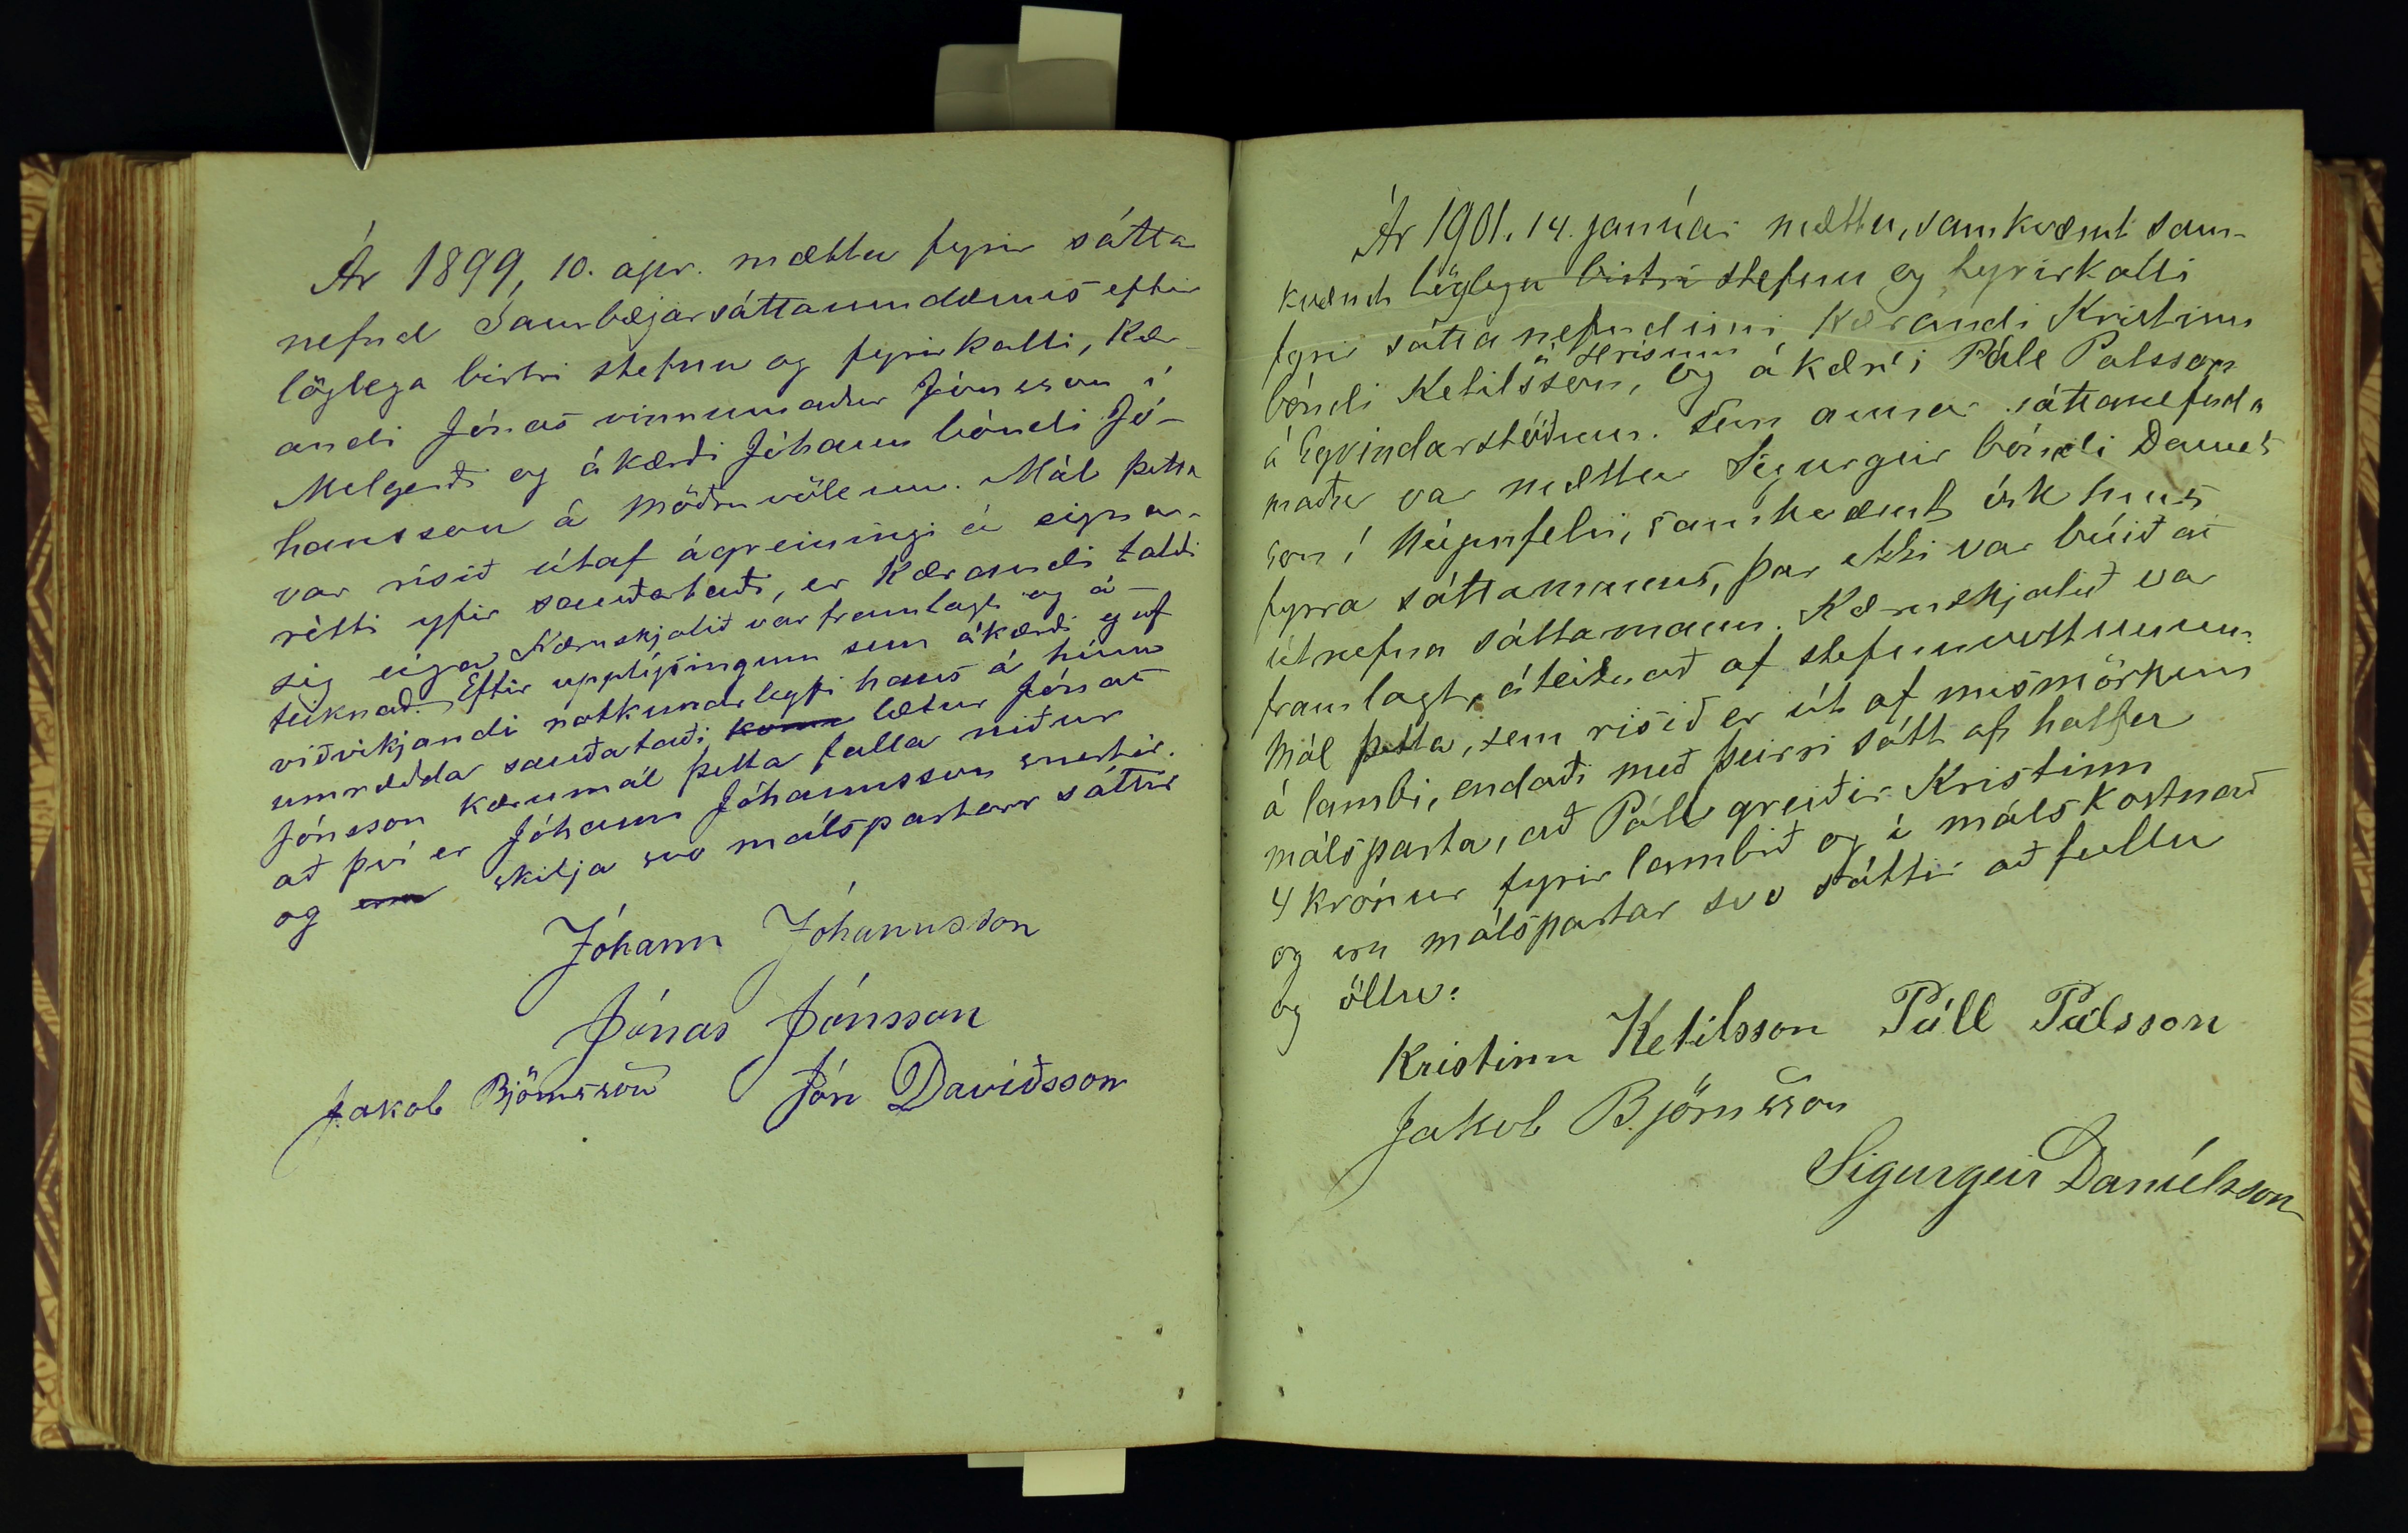 Ár 1899, 10. apr. mættu fyrir sátta
nefnd Saurbæjarsáttaumdæmis eftir
löglega birtri stefnu og fyrirkalli, Kær-
andi Jónas vinnumaður Jónsson í
Melgerði og ákærði Jóhann bóndi Jó-
hansson á Möðruvöllum. Mál þetta
var risið útaf ágreiningi á eigna-
rétti yfir sauðataði, er Kærandi taldi
sig eiga, Kæruskjalið var framlagt og á-
teiknað. Eftir upplýsingum sem ákærði gaf
viðvikjandi notkunarleysi hans á húsum
umrædda sauðataði lætur Jónas
Jónsson kærumál þetta falla niður
að því er Jóhann Jóhannsson snertir.
og skilja svo málspartarr sáttir
Jóhann Jóhannsson
Jónas Jónsson
Jakob Björnsson Jón Davíðsson
Ár 1901. 14. janúar mættu, samkvæmt sam-
kvæmt löglega birtri stefnu og fyrirkalli
fyrir sáttanefndinni Kærandi Kristinn
á Hrísum
bóndi Ketilsson, og ákærði Páll Palsson
á Eyvindarstöðum. Sem annar sáttanefnda
maður var mættur Sigurgeir bóndi Daníels
son í Núpufelli, samkvæmt ósk hins
fyrra sáttamanns, þar ekki var búið að
útnefna sáttamann. Kæruskjalið var
framlagt, áteiknað af stefnuvottunum.
Mál þetta, sem risið er út af mismörkun
á lambi, endaði með þeirri sátt af halfu
málsparta, að Páll greiðir Kristinn
4 krónur fyrir lambið og í málskostnað
og eru málspartar svo sáttir að fullu
og öllu.
Kristinn Ketilsson Páll Pálsson
Jakob Björnsson
Sigurgeir Daníelsson